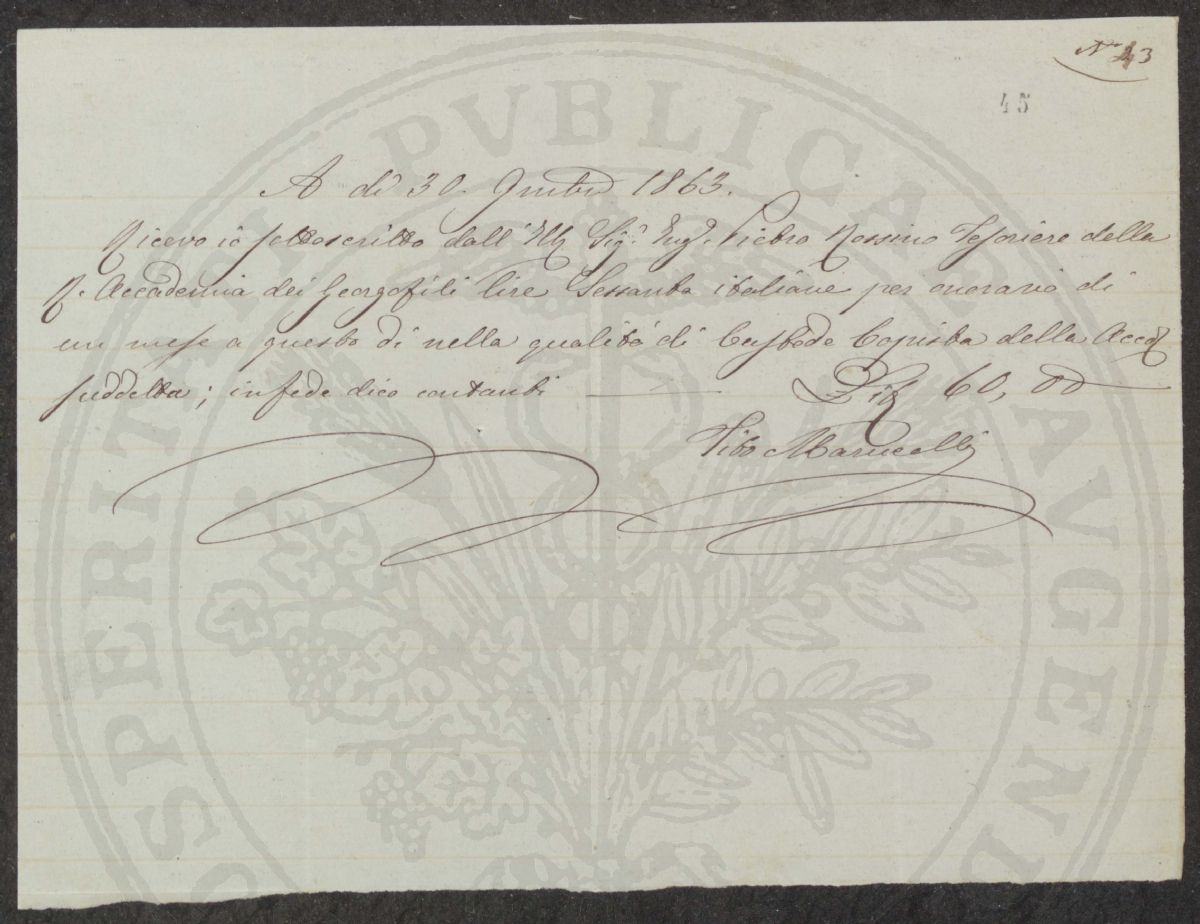 N° 43
45
A dì 30. 9mbre 1863.
Ricevo io sottoscritto dall' Ill Sig.r Ing.e Pietro Rossini Tesoriere della
R. Accademia dei Georgofili lire Sessanta italiane per onorario di
un mese a questo dì nella qualità di Custode Copista della Acca
suddetta; in fede dico contanti — Lit 60,00
Tito Marucelli
PROSPERITATI PVBLICAE AVGENDAE